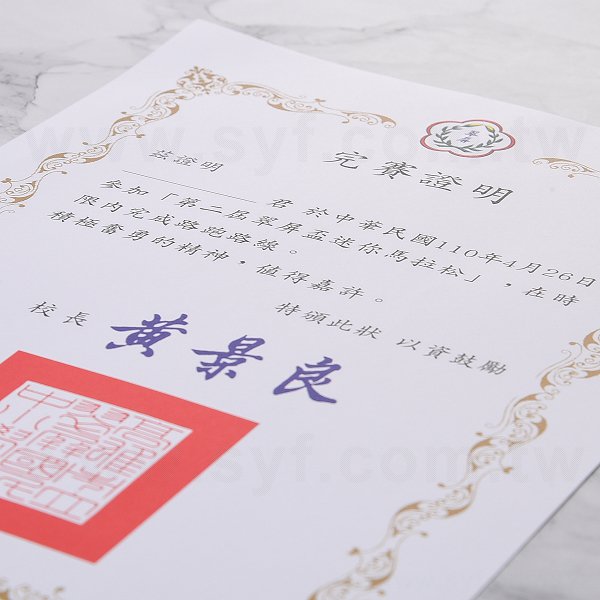 翠屏
完賽證明
茲證明
君 於中華民國110年4月26日
參加「第二屆翠屏盃迷你馬拉松」，在時
限內完成路跑路線。
積極奮勇的精神，值得嘉許。
特頒此狀 以資鼓勵
校長 黃景良
www.syf.com.tw
syf.com.tw